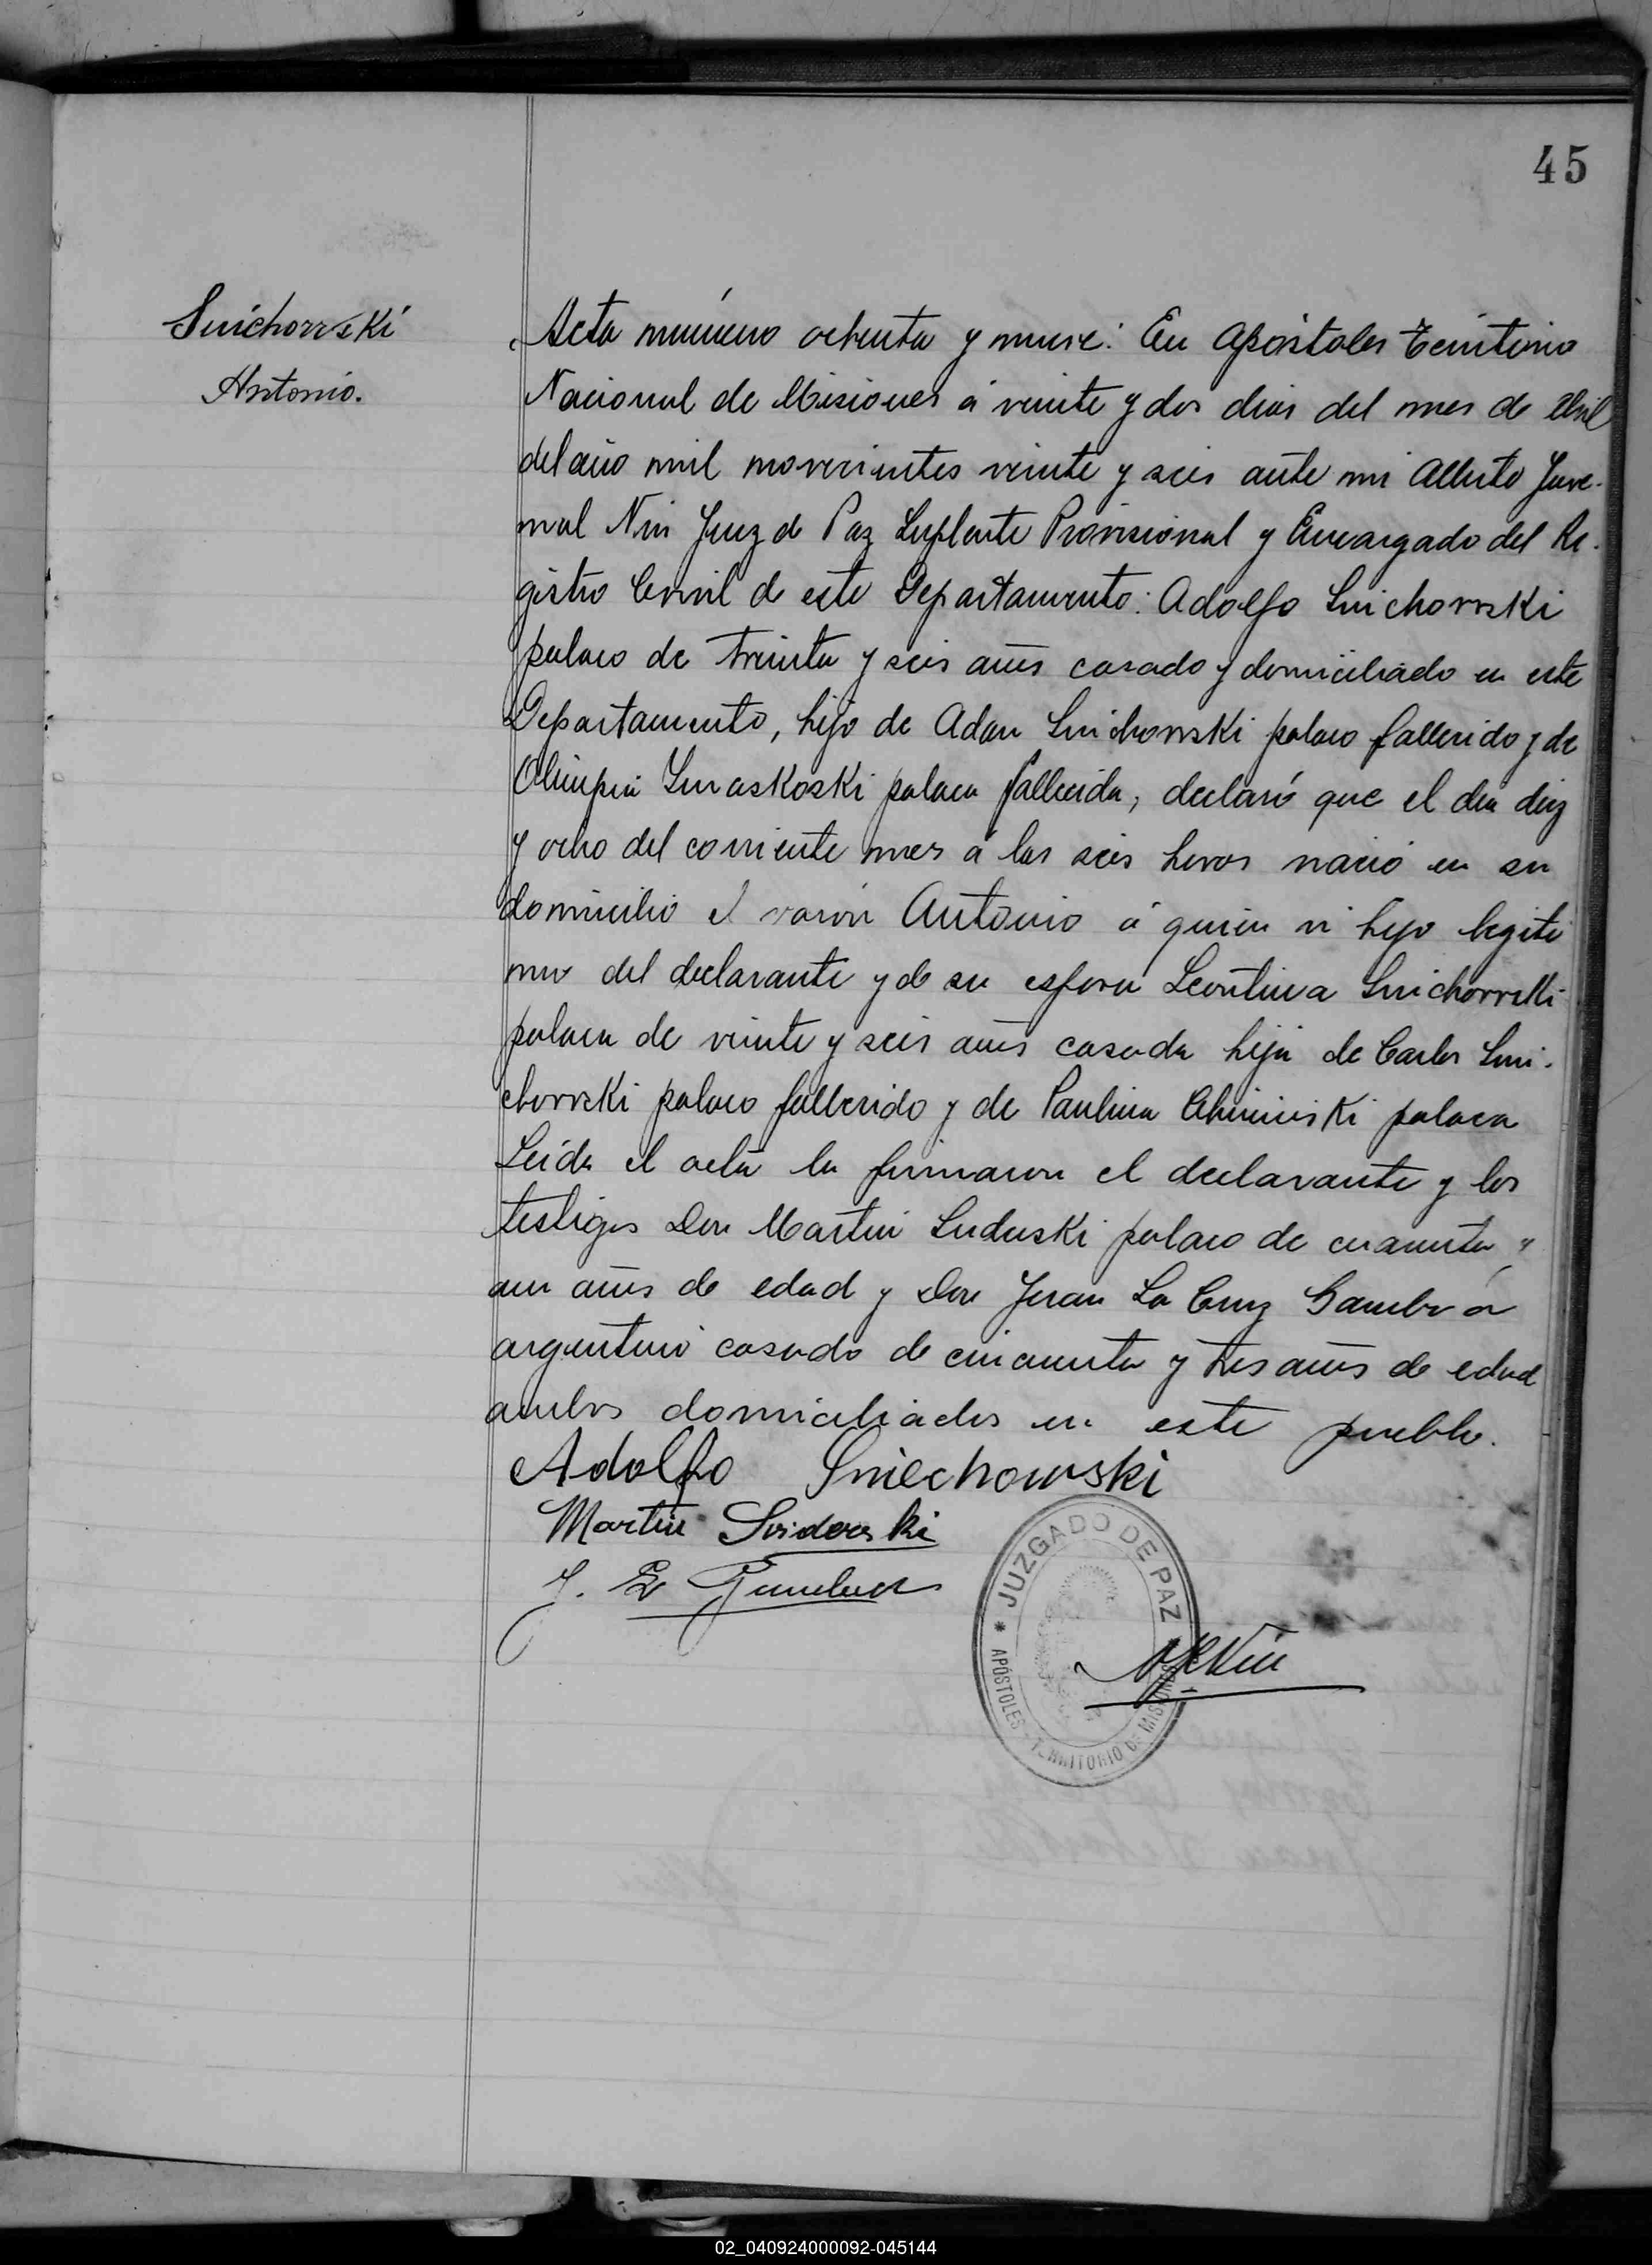 45
Snichowski
Antonio.
Acta número ochenta y nueve: En Apóstoles Territorio
Nacional de Misiones á veinte y dos dias del mes de Abril
del año mil novecientos veinte y seis ante mi Alberto Juve-
nal Nin Juez de Paz Suplente Provisional y Encargado del Re-
gistro Civil de este Departamento: Adolfo Snichowski
polaco de treinta y seis años casado y domiciliado en este
Departamento, hijo de Adan Snichowski polaco fallecido y de
Olimpia polaca fallecida, declaró que el dia diez
y ocho del corriente mes á las seis horas nació en su
domicilio el varón Antonio á quien vi hijo legiti
mo del declarante y de su esposa Leontina Snichowski
polaca de veinte y seis años casada hija de Carlos Sni-
chowski polaco fallecido y de Paulina polaca
Leida el acta la firmaron el declarante y los
testigos Don Martin polaco de cuarenta y
un años de edad y Don Juan La Cruz Gamboa
argentino casado de cincuenta y tres años de edad
ambos domiciliados en este pueblo.
Adolfo Sniechowski
Martin Sviderski
J. Gamboa
JUZGADO DE PAZ
APÓSTOLES - TERRITORIO DE MISIONES
AJNin
02_040924000092-045144